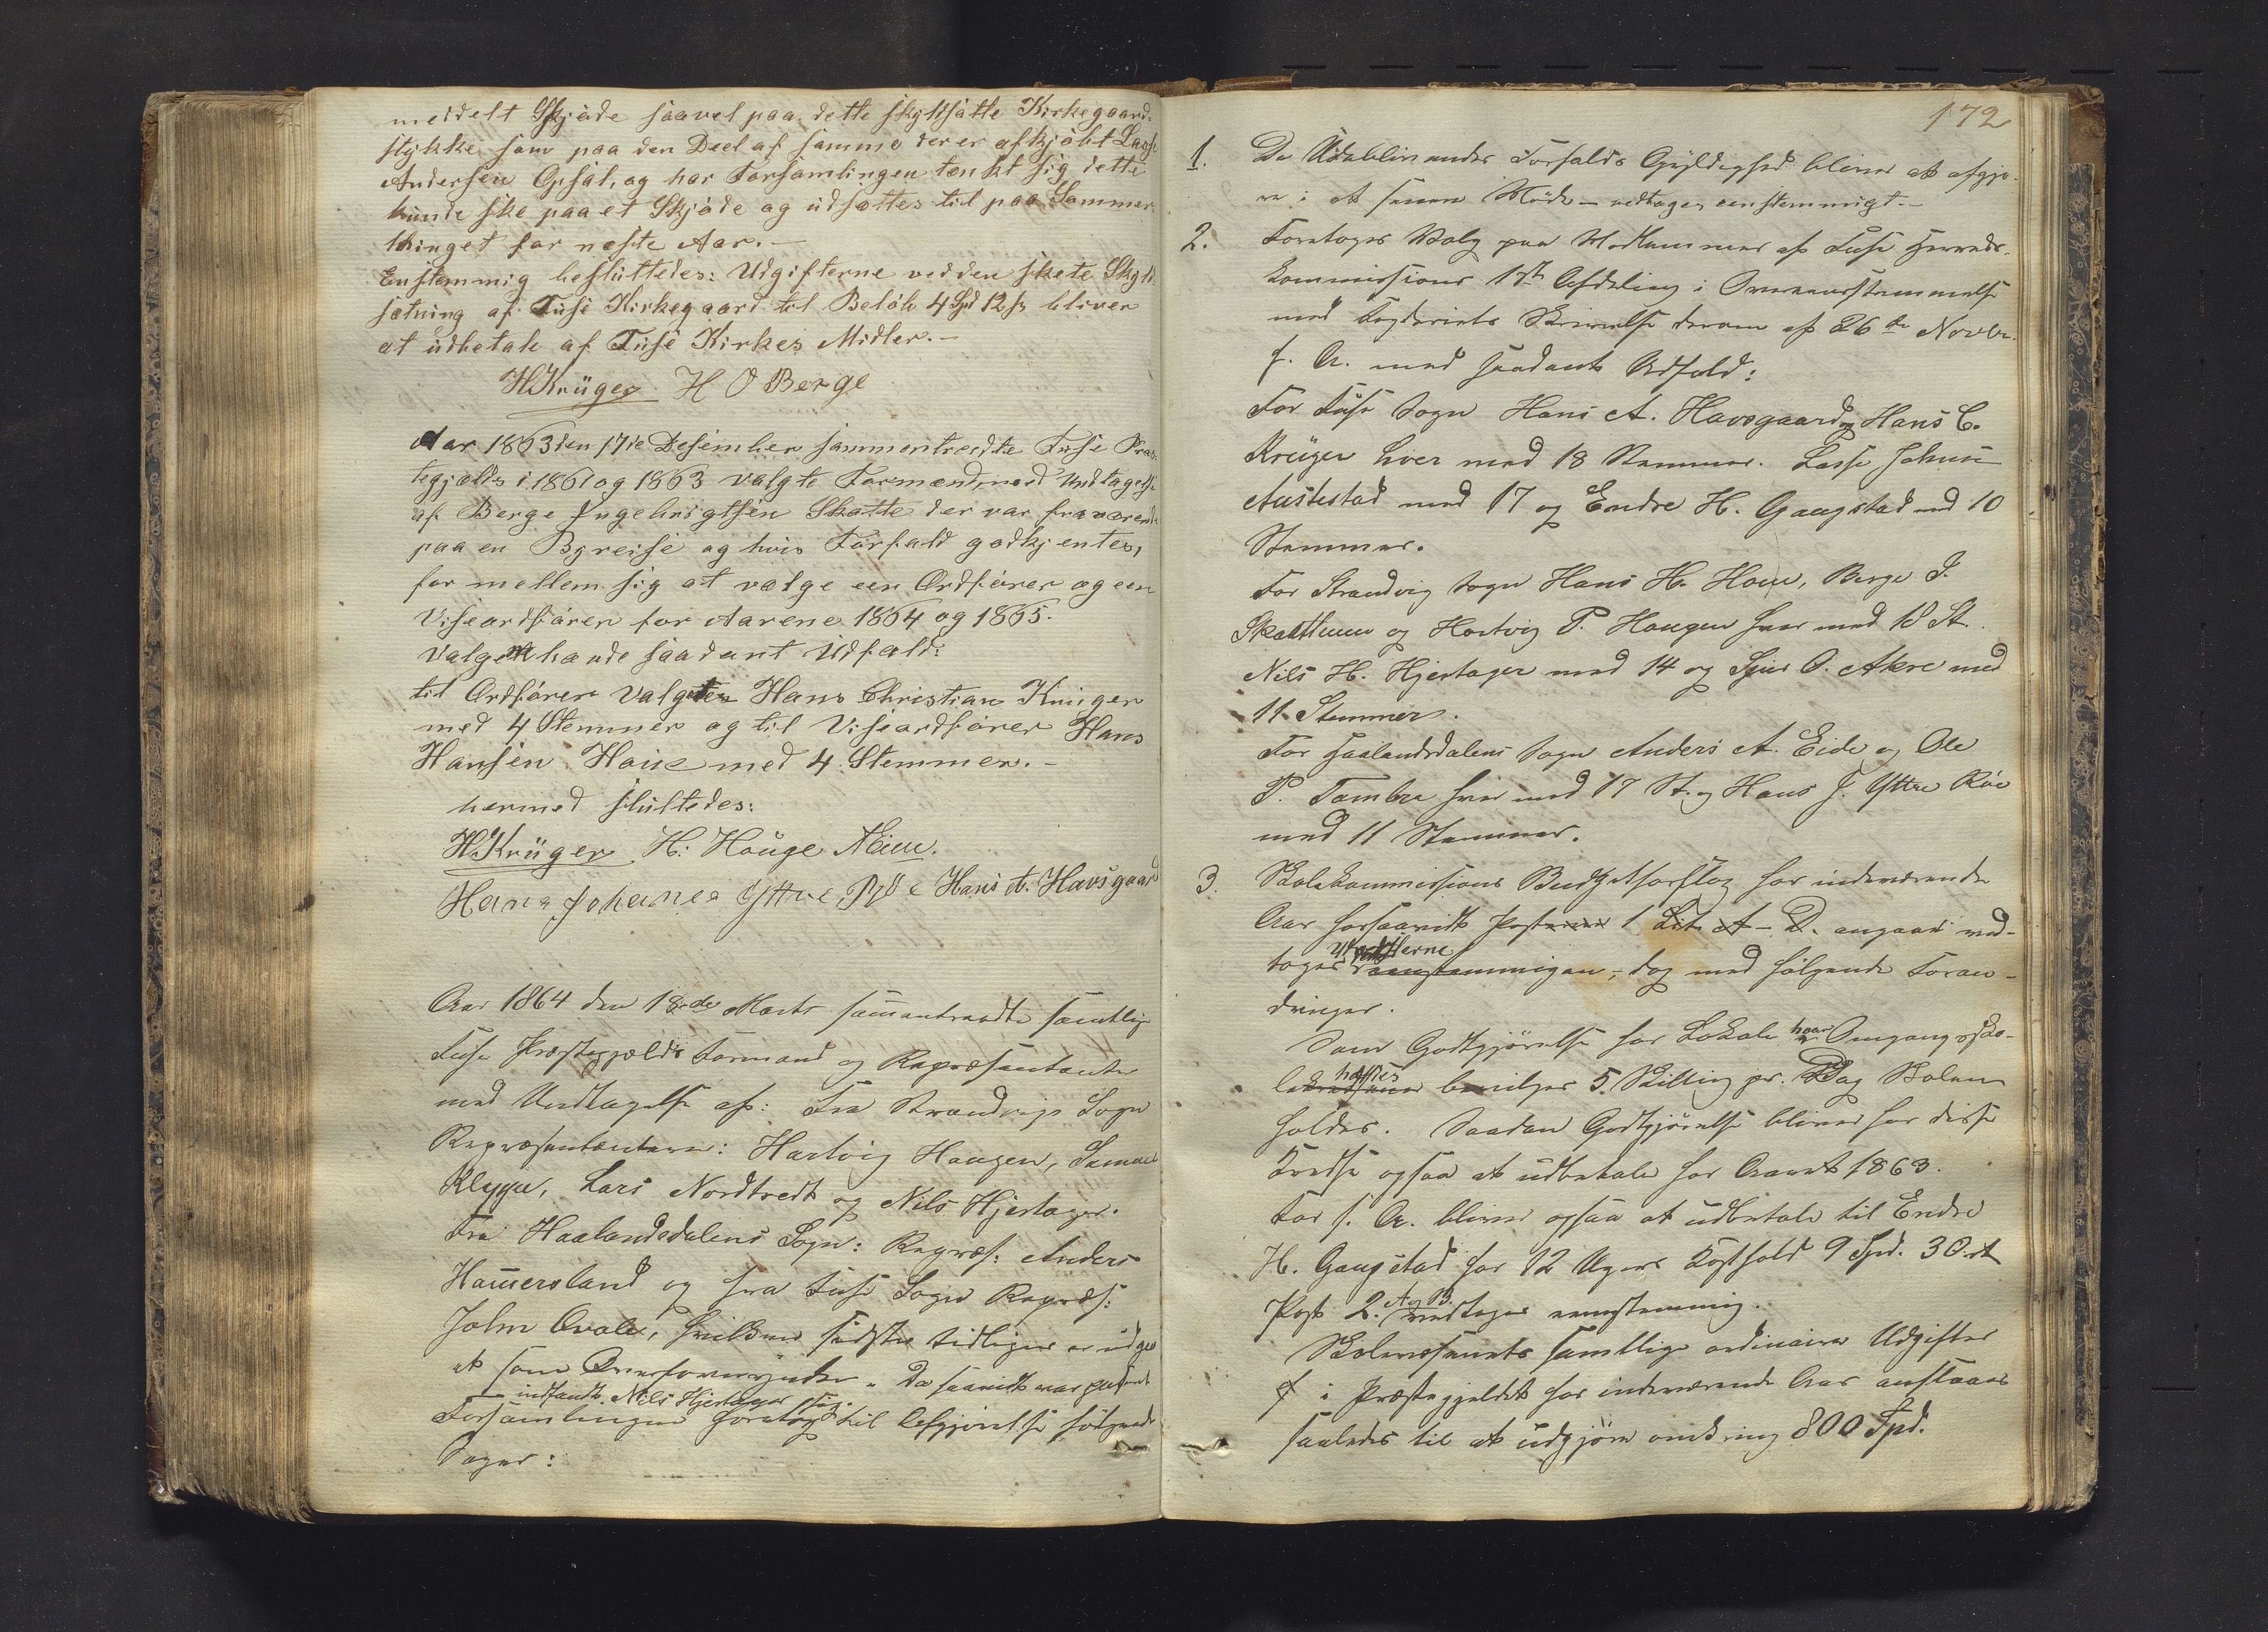 meddelt Skjøde saavel paa dette skyldsatte Kirkegaard-
stykke som paa den Deel af samme der er afkjøbt Lasse
Andersen Opsal, og har Forsamlingen tænkt sig dette
kunde ske paa et Skjøde og udsættes til paa Sommer-
thinget for næste Aar.-
Enstemmig besluttedes: Udgifterne ved den skete Skyld
sætning af Fuse Kirkegaard til Beløb 4 Spd 12 s bliver
at udbetale af Fuse Kirkes Midler.-
HKrüger H O Berge
Aar 1863 den 17de Desember sammentredte Fuse Præs-
tegjælds i 1861 og 1863 valgte Formænd, med Undtagelse
af Berge Ingebrigtsen Skatte der var fraværende
paa en Byreise og hvis Forfald godkjentes,
for mellem sig at vælge een Ordfører og een
Viseordfører for Aarene 1864 og 1865.
Valget havde saadant Udfald:
til Ordfører valgtes Hans Christian Krüger
med 4 Stemmer og til Viseordfører Hans
Hansen Houge med 4 Stemmer.-
hermed sluttedes:
HKrüger H: Houge AEide.
Hans Johanes Yttre Røe Hans A. Havsgaard
Aar 1864 den 18de Marts sammentraadte samtlige
Fuse Præstegjælds Formænd og Repræsentanter
med Undtagelse af: Fra Strandvigs Sogn
Repræsentanterne: Hartvig Haugen, Samuel
Klyve, Lars Nordtvedt og Nils Hjertager.
Fra Haalandsdalens Sogn: Repræs: Anders
Hammersland og fra Fuse Sogn Repræs:
John Ovale, hvilken sidste tidligere er udgaa
et som Overformynder. Da saavidt var passert
indfandt Nils Hjertager sig.
Forsamlingen foretog til Afgjørelse følgende
Sager:
172
1. De Udeblivendes Forfalds Gyldighed bliver at afgjø-
re i et senere Møde - vedtages eenstemmigt.-
2. Foretoges Valg paa Medlemmer af Fuse Herreds-
kommissions 1ste Afdeling i Overeensstemmelse
med Fogderiets Skrivelse derom af 26de Novbr.
f. A. med saadant Udfald:
For Fuse Sogn Hans A. Havsgaard og Hans C.
Krüger hver med 18 Stemmer. Lasse Johans
Austestad med 17 og Endre H. Gaugstad med 10
Stemmer.
For Strandvig Sogn Hans H. Houge, Berge I.
Skattum og Hartvig P. Haugen hver med 18 St.
Nils H. Hjertager med 14 og Sjur O. Akre med
11 Stemmer.
For Haalandsdalens Sogn Anders A. Eide og Ole
P. Tombre hver med 17 St. og Hans J. Yttre Røe
med 11 Stemmer.
3. Skolekommissions Budgetforslag for indeværende
Aar forsaavidt Posterne 1 Lit A - D. angaar ved-
toges eenstemmigen,- dog med følgende Foran-
dringer.
Som Godtgjørelse for Lokale hvor Omgangssko-
le holdes bevilges 5. Skilling pr. Dag Skolen
holdes. Saadan Godtgjørelse bliver for disse
Kredse ogsaa at udbetale for Aaret 1863.
For f. A. bliver ogsaa at udbetale til Endre
H. Gaugstad for 12 Ugers Kosthold 9 Spd. 3 Ort
Post 2. A og B. vedtoges eenstemmig.
Skolevæsenets samtlige ordinaire Udgifter
i Præstegjeldet for indeværende Aar anslaaes
saaledes til at udgjøre omkring 800 Spd.